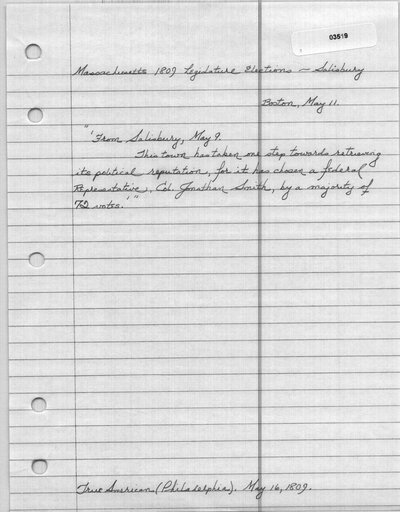 03519
Massachusetts 1809 Legislature Elections - Salisbury
Boston, May 11.
"
'From Salisbury, May 9.
This town has taken one step towards retrieving
its political reputation, for it has chosen a federal
Representative, Col. Jonathan Smith, by a majority of
72 votes.'"
True American (Philadelphia). May 16, 1809.